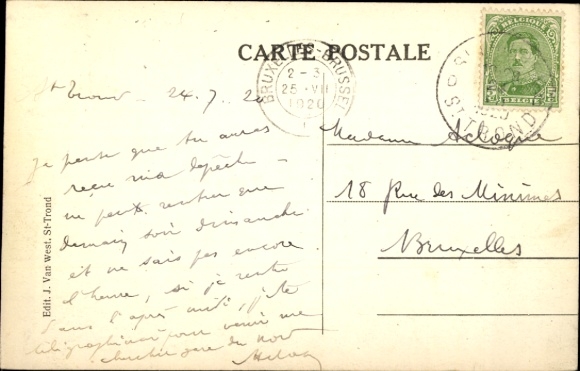 CARTE POSTALE
BELGIQUE
BELGIE
BRUXELLES-BRUSSEL
2-3
25 VII
1920
ST TROND
St Trond 24.7.20
Je pense que tu auras
reçu ma dépêche
ne peux rentrer que
demain soir dimanche
et ne sais pas encore
l'heure, si je rentre
dans l'après midi, je te
télégraphierai pour venir me
chercher gare du Nord
Madame
18 Rue des Minimes
Bruxelles
Edit. J. Van West, St-Trond